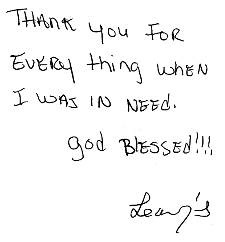 THANK YOU FOR
EVERY thing WHEN
I WAS IN NEED.
god BLESSED!!!